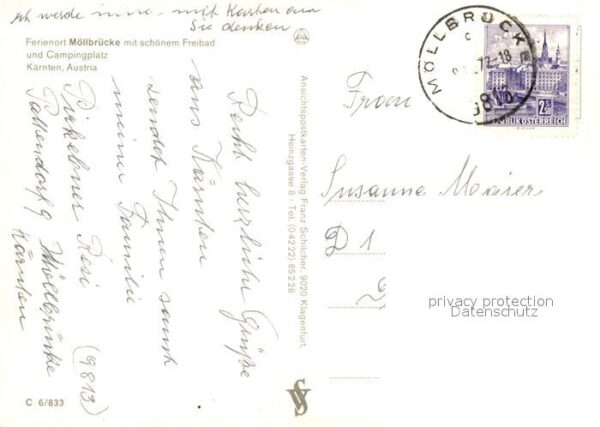 ich werde immer mit Karten an
Sie denken
Ferienort Möllbrücke mit schönem Freibad
und Campingplatz
Kärnten, Austria
Recht herzliche Grüße
aus Kärnten
sendet Ihnen samt
meiner Familie
Rosi
9
Möllbrücke
Kärnten
(9813)
C 6/833
Ansichtspostkarten-Verlag Franz Schilcher, 9020 Klagenfurt,
Heinzgasse 8 - Tel. (04222) 85228
MÖLLBRÜCKE
72-18
9813
2.50
REPUBLIK ÖSTERREICH
Frau
Susanne Maaier
D 1
privacy protection
Datenschutz